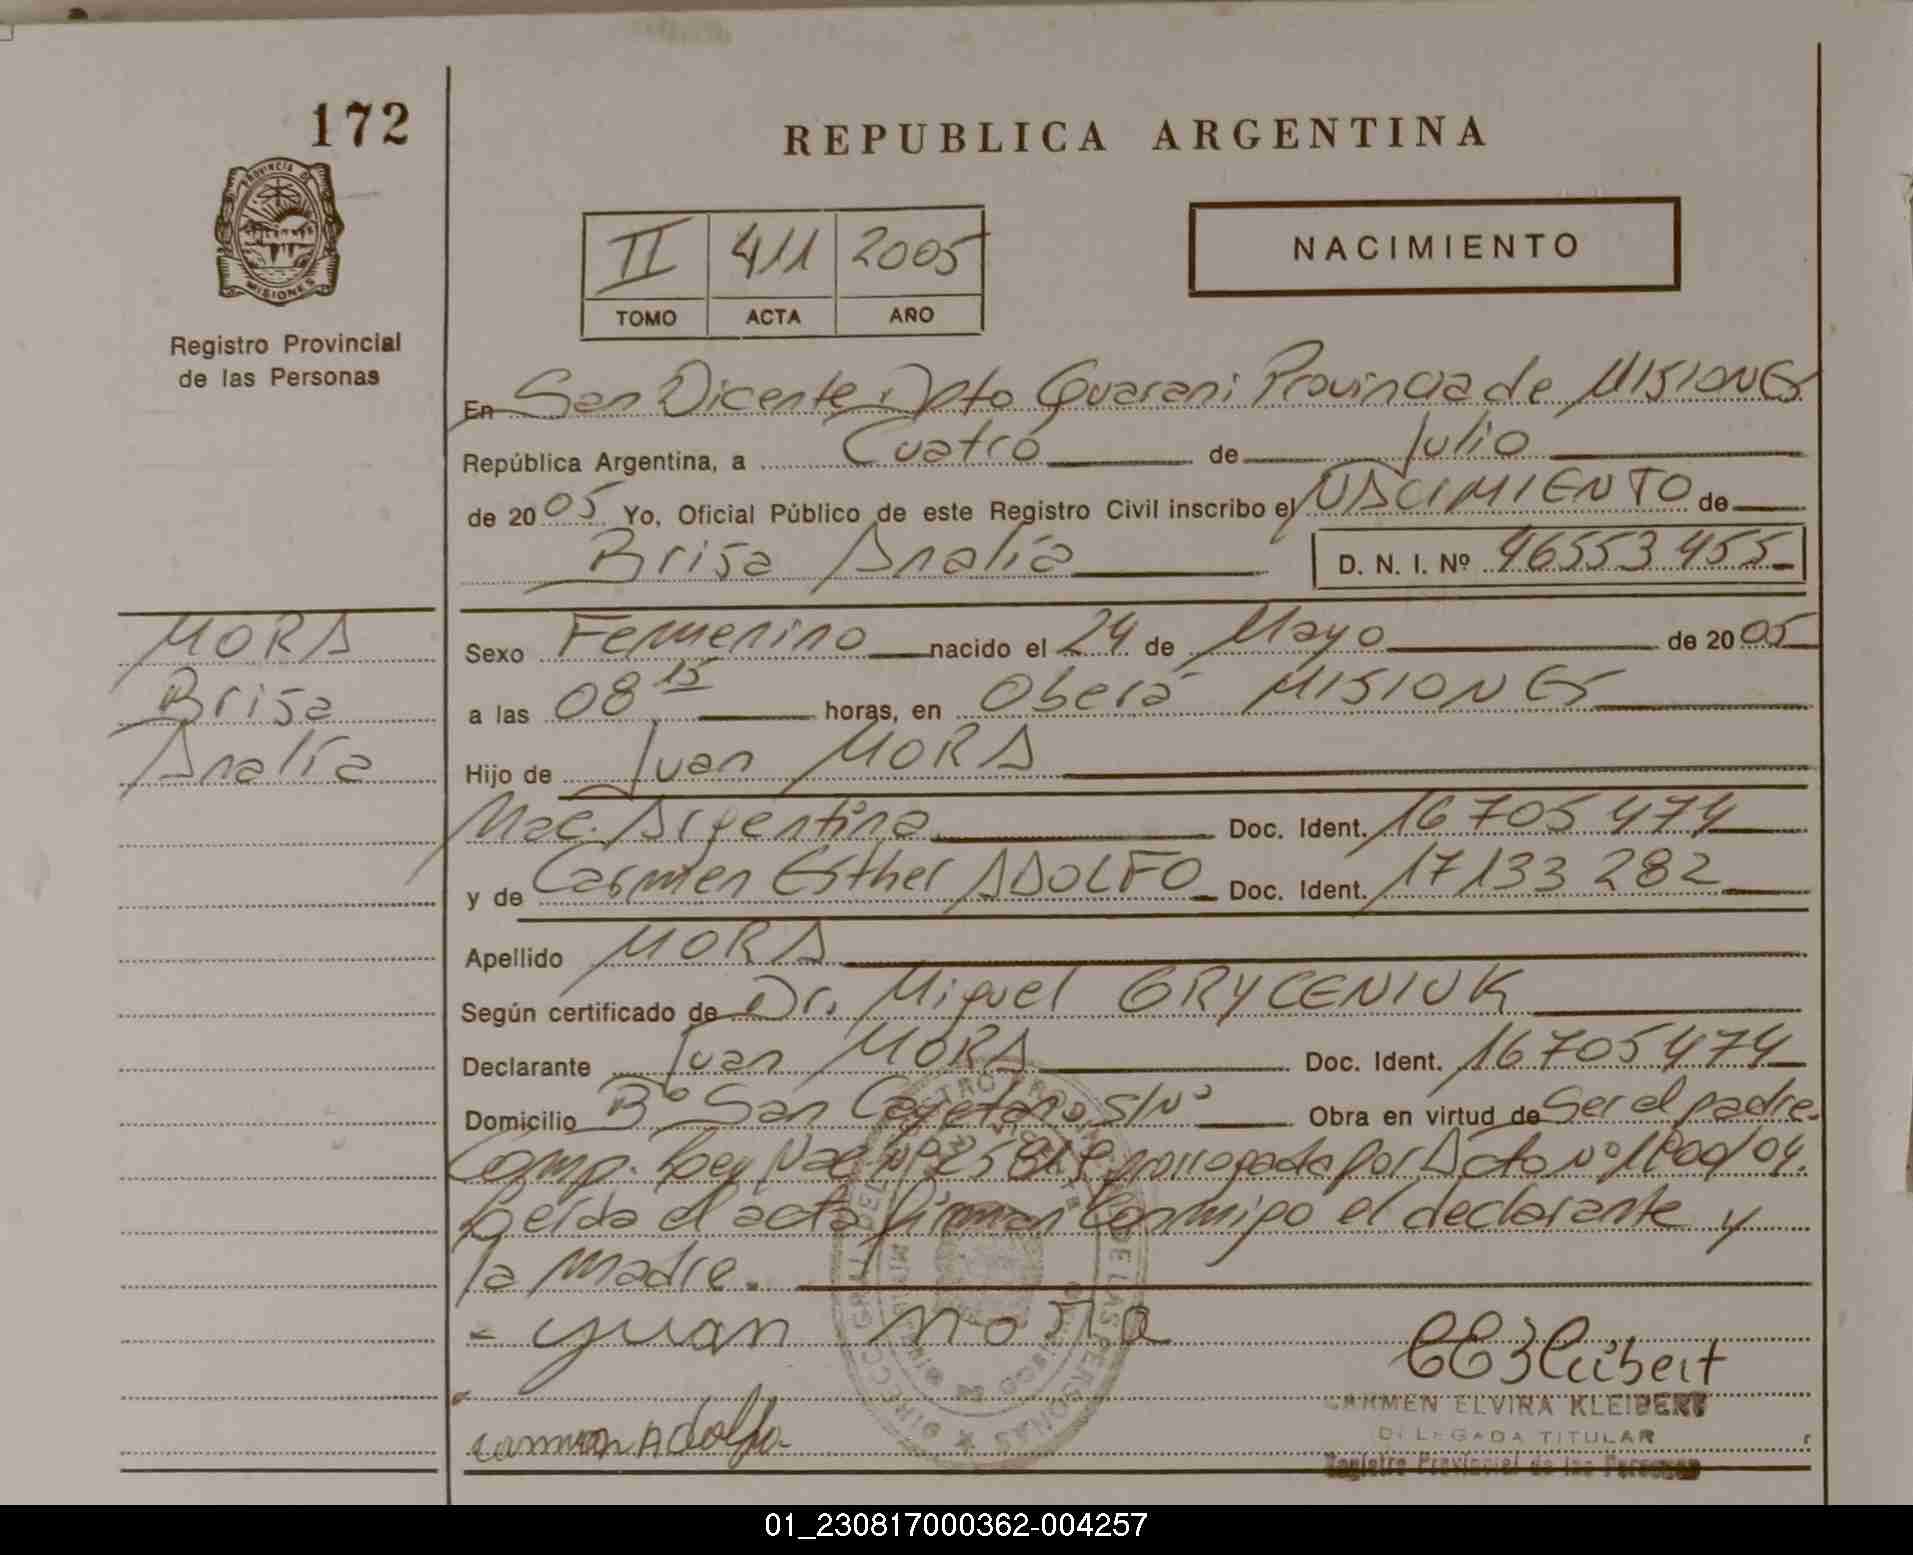 172
PROVINCIA DE
MISIONES
Registro Provincial
de las Personas
REPUBLICA ARGENTINA
II 411 2005
TOMO ACTA AÑO
NACIMIENTO
En San Vicente Dpto Guarani Provincia de MISIONES
República Argentina, a Cuatro de Julio
de 2005 Yo, Oficial Público de este Registro Civil inscribo el NACIMIENTO de
Brisa Analía D. N. I. Nº 46553455
MORA
Brisa
Analía
Sexo Femenino nacido el 24 de Mayo de 2005
a las 08 15 horas, en Oberá MISIONES
Hijo de Juan MORA
Nac. Argentina Doc. Ident. 16705474
y de Carmen Esther ADOLFO Doc. Ident. 17133282
Apellido MORA
Según certificado de Dr. Miguel GRYCENIUK
Declarante Juan MORA Doc. Ident. 16705474
Domicilio Bº San Cayetano S/Nº Obra en virtud de Ser el padre.
Comp. Ley Nac Nº 25819 prorrogada por
Leída el acta firman Conmigo el declarante y
la Madre.
Juan mora
carmen Adolfo
CARMEN ELVIRA KLEIBERT
DELEGADA TITULAR
Registro Provincial de las Personas
01_230817000362-004257